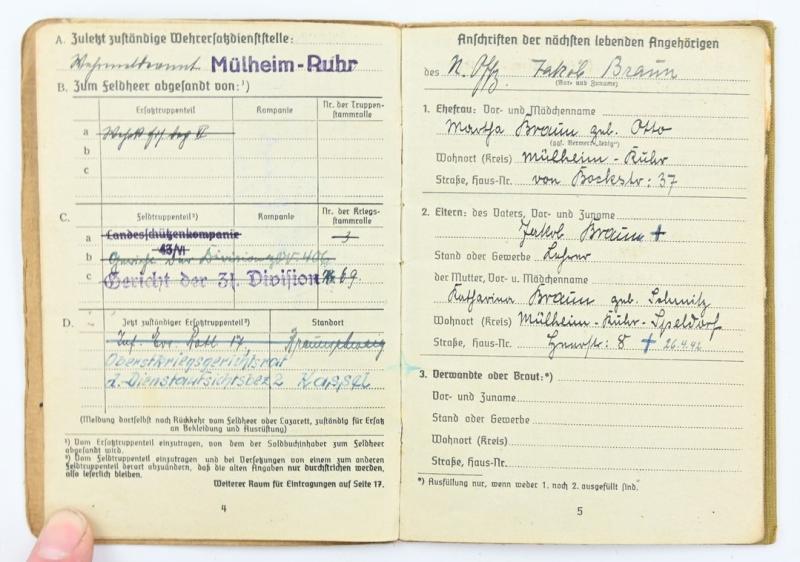 A. Zuletzt zuständige Wehrersatzdienststelle:
Wehrmeldeamt Mülheim-Ruhr
B. Zum Feldheer abgesandt von:¹)
Ersatztruppenteil Kompanie Nr. der Truppen-
stammrolle
a
b
c
C. Feldtruppenteil²) Kompanie Nr. der Kriegs-
stammrolle
a Landesschützenkompanie 3
43/VI
b Gericht der Division
c Gericht der 31. Division Nr. 69
D. Jetzt zuständiger Ersatztruppenteil²) Standort
Inf. Ers. Batl 17 Braunschweig
Oberstkriegsgerichtsrat
d. Dienstaufsichtsbez 2 Kassel
(Meldung dortselbst nach Rückkehr vom Feldheer oder Lazarett, zuständig für Ersatz
an Bekleidung und Ausrüstung)
¹) Vom Ersatztruppenteil einzutragen, von dem der Soldbuchinhaber zum Feldheer
abgesandt wird.
²) Vom Feldtruppenteil einzutragen und bei Versetzungen von einem zum anderen
Feldtruppenteil derart abzuändern, daß die alten Angaben nur durchstrichen werden,
also leserlich bleiben.
Weiterer Raum für Eintragungen auf Seite 17.
4
Anschriften der nächsten lebenden Angehörigen
des U. Offz. Jakob Braun
(Vor- und Zuname)
1. Ehefrau: Vor- und Mädchenname
Martha Braun geb. Otto
(ggf. Vermerk „ledig“)
Wohnort (Kreis) Mülheim-Ruhr
Straße, Haus-Nr. von Bockstr: 37
2. Eltern: des Vaters, Vor- und Zuname
Jakob Braun +
Stand oder Gewerbe Lehrer
der Mutter, Vor- u. Mädchenname
Katharina Braun geb. Schmitz
Wohnort (Kreis) Mülheim-Ruhr-Speldorf
Straße, Haus-Nr. 8 + 26.4.42
3. Verwandte oder Braut:*)
Vor- und Zuname
Stand oder Gewerbe
Wohnort (Kreis)
Straße, Haus-Nr.
*) Ausfüllung nur, wenn weder 1. noch 2. ausgefüllt sind.
5